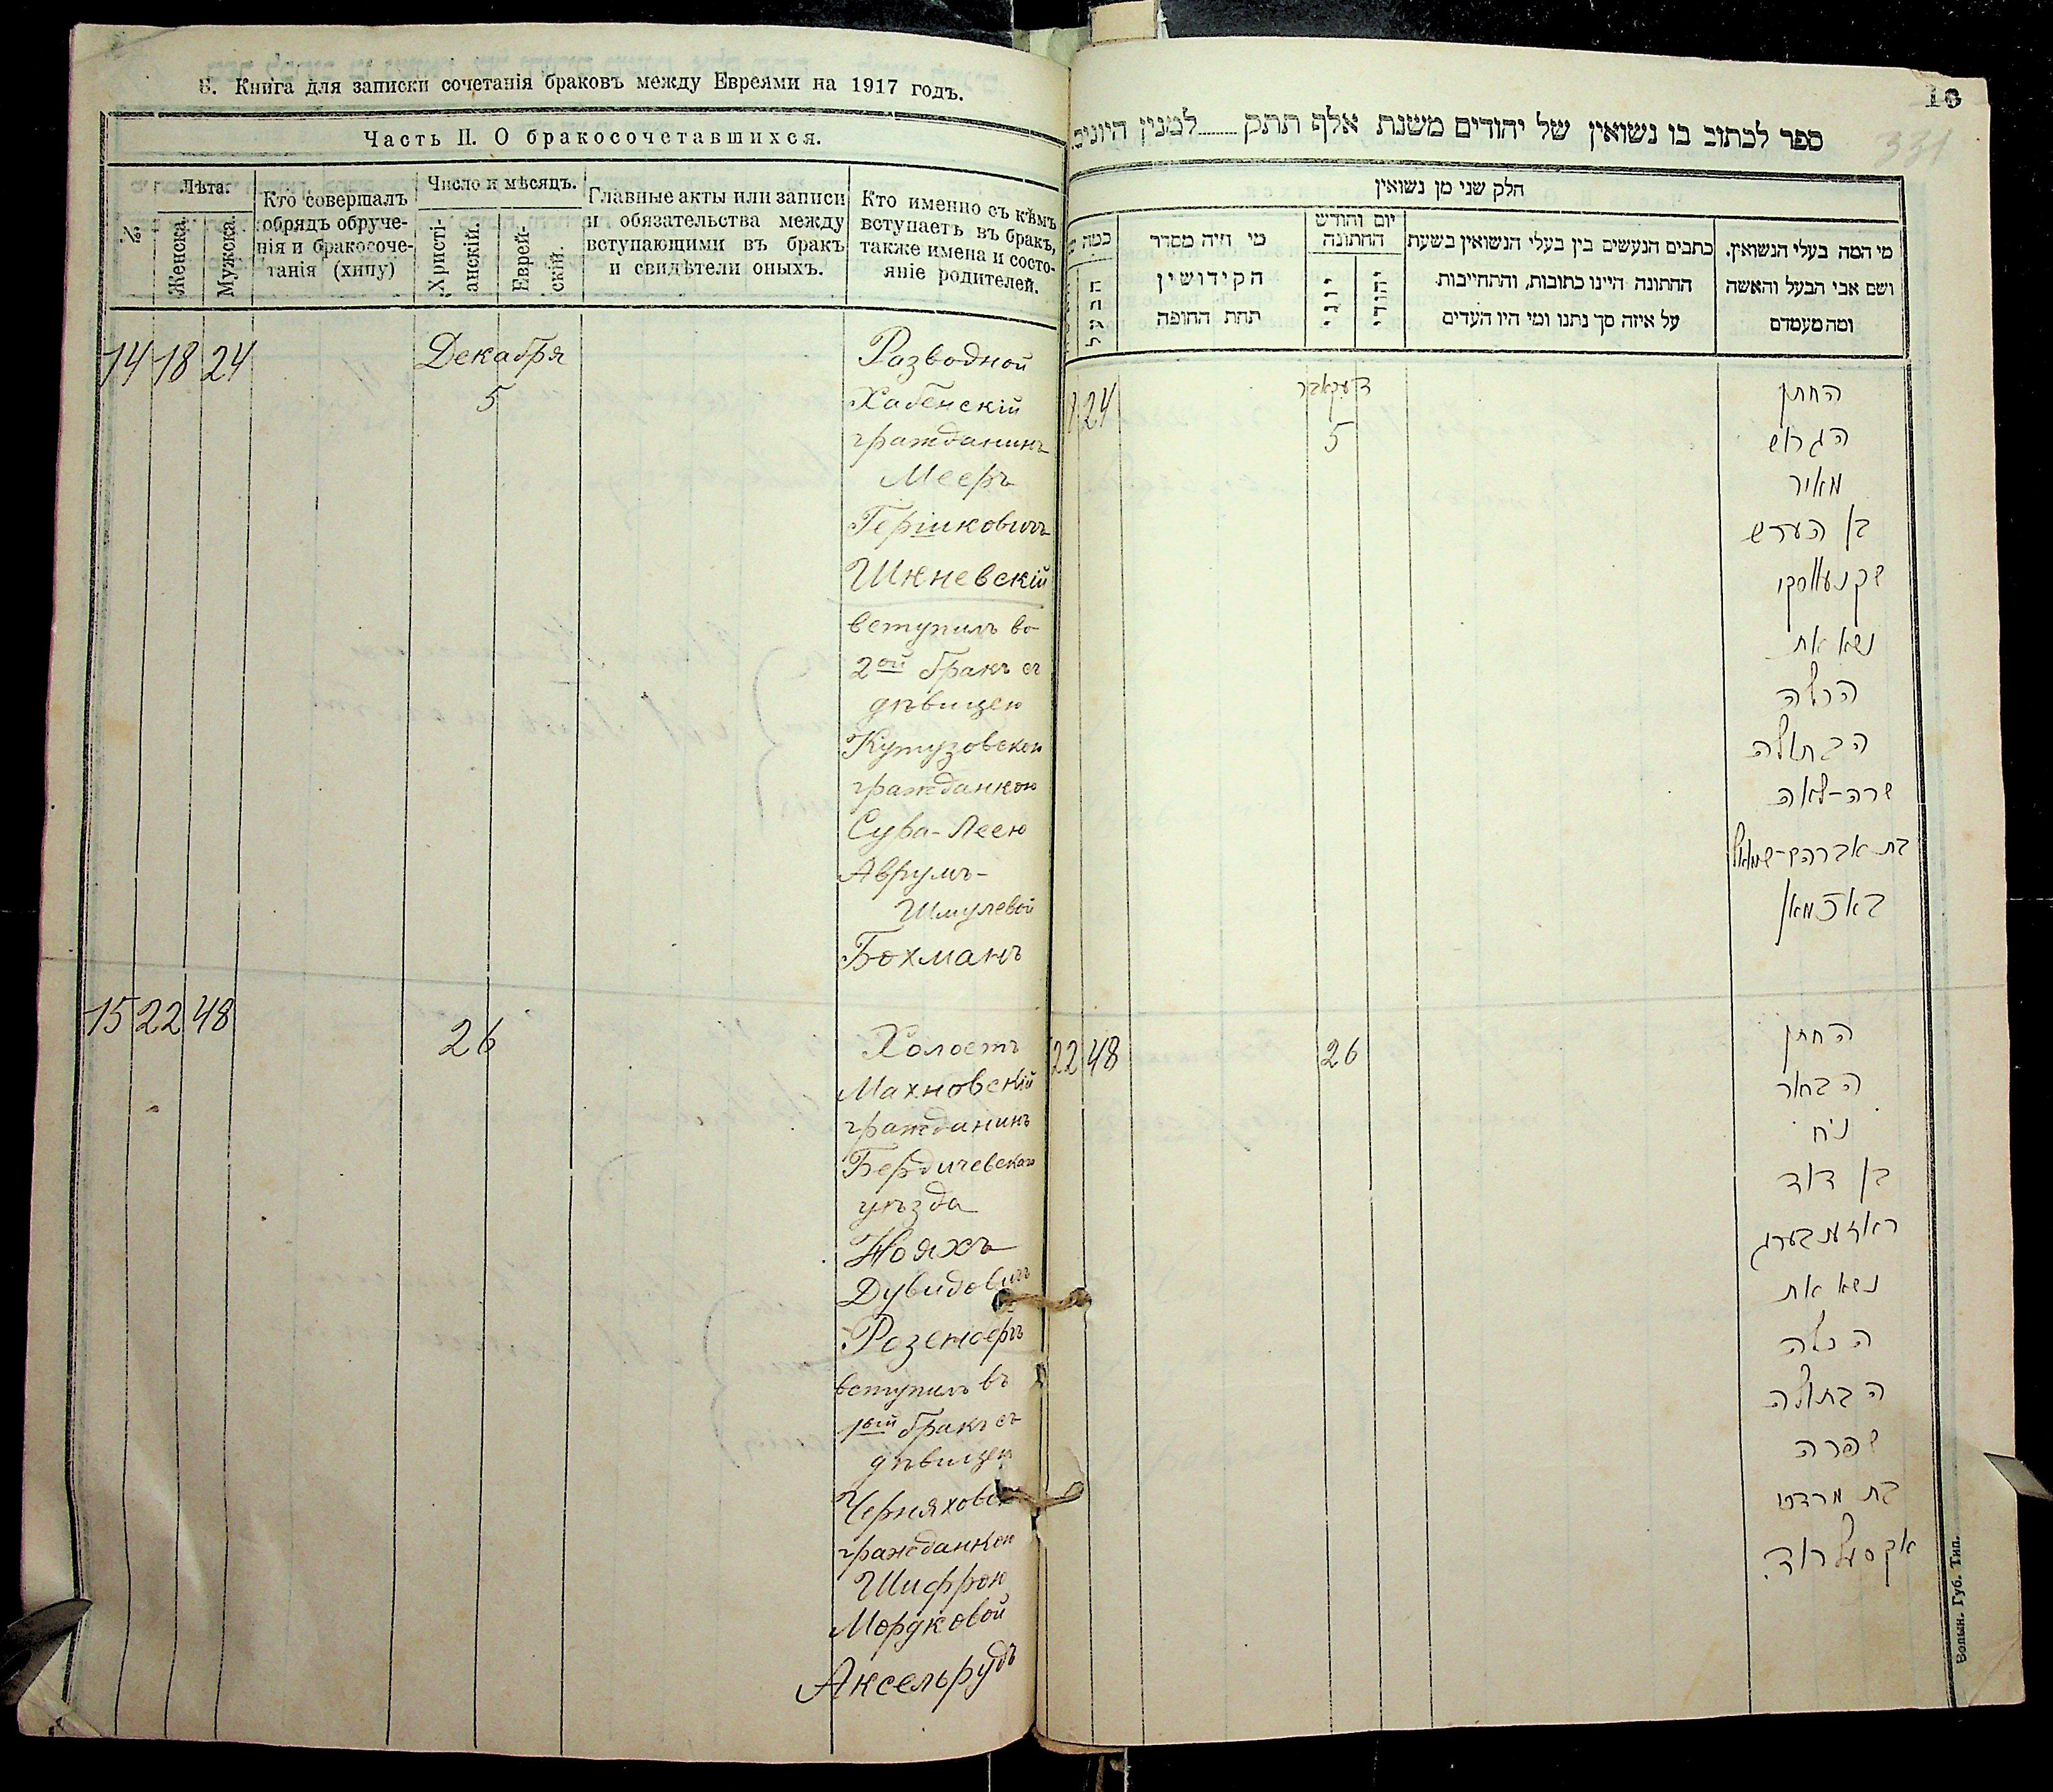 Б. Книга для записки сочетанія браковъ между Евреями на 1917 годъ.
Часть II. О бракосочетавшихся.
№
Лѣта.
Женска.
Мужска.
Кто совершалъ
обрядъ обруче-
нія и бракосоче-
танія (хипу)
Число и мѣсяцъ.
Христі-
анскій.
Еврей-
скій.
Главные акты или записи
и обязательства между
вступающими въ бракъ
и свидѣтели оныхъ.
Кто именно съ кѣмъ
вступаетъ въ бракъ,
также имена и состо-
яніе родителей.
14 18 24
Декабря
5
Разводной
Хабенскій
гражданинъ
Мееръ
Гершковичъ
вступилъ во
2ой бракъ съ
дѣвицею
гражданкою
Сура-Леею
Аврумъ-
Шмулевой
Бохманъ
15 22 48
26
Холостъ
Махновскій
гражданинъ
Бердичевскаго
уѣзда
Нояхъ
Дувидовичъ
вступилъ въ
1ый бракъ съ
дѣвицею
гражданкою
Шифрою
Мордковой
Аксельрудъ
16
331
ספר לכתוב בו נשואין של יהודים משנת אלף תתק למנין היונים
חלק שני מן נשואין
מי המה בעלי הנשואין.
ושם אבי הבעל והאשה
ומה מעמדם
כתבים הנעשים בין בעלי הנשואין בשעת
החתונה היינו כתובות, והתחייבות
על איזה סך נתנו ומי היו העדים
יום וחודש
החתונה
יהודי
יוני
מי היה מסדר
הקידושין
תחת החופה
כמה
הבעל
24
דעקאבר
5
החתן
הגרוש
מאיר
בן הערש
נשא את
הכלה
הבתולה
שרה-לאה
בת אברהם-שמואל
באכמאן
22 48
26
החתן
הבחור
נח
בן דוד
ראזענבערג
נשא את
הכלה
הבתולה
שפרה
בת מרדכי
אקסעלרוד
Волын. Губ. Тип.